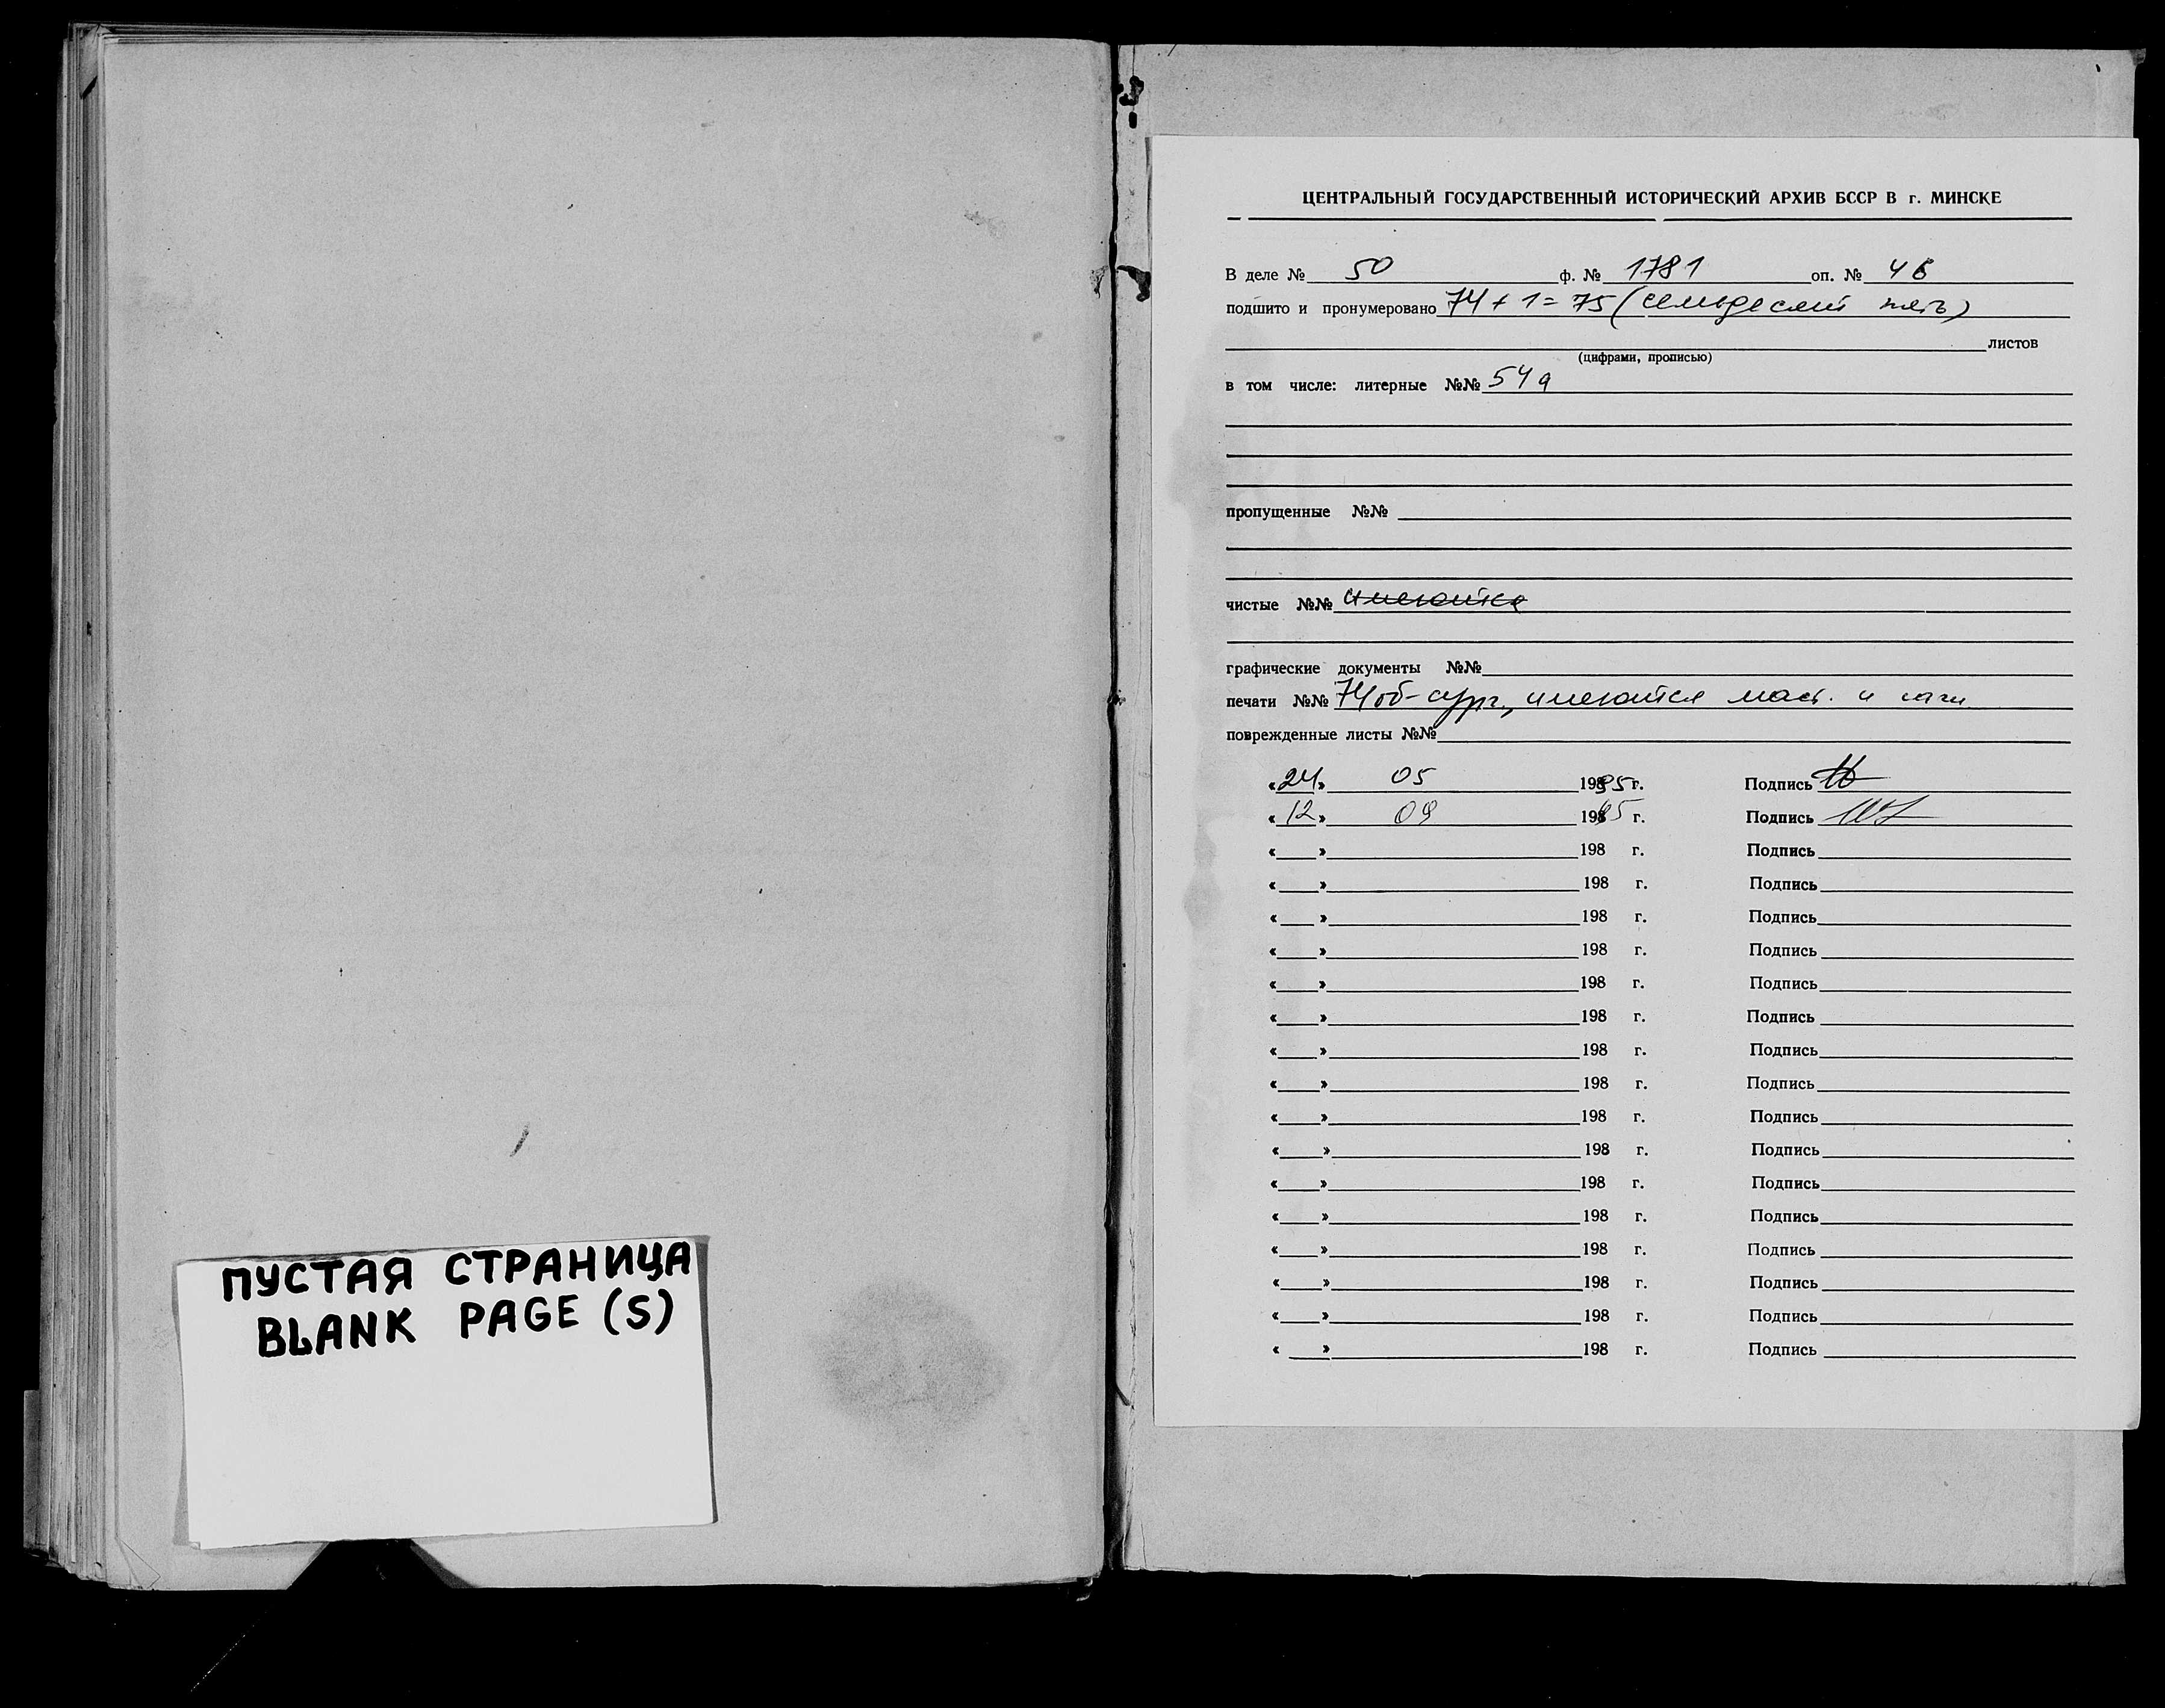 ПУСТАЯ СТРАНИЦА
BLANK PAGE (S)
ЦЕНТРАЛЬНЫЙ ГОСУДАРСТВЕННЫЙ ИСТОРИЧЕСКИЙ АРХИВ БССР В г. МИНСКЕ
В деле № 50 ф. № 1781 оп. № 46
подшито и пронумеровано 74 + 1 = 75 (семьдесят пять)
листов
(цифрами, прописью)
в том числе: литерные №№ 54а
пропущенные №№
чистые №№ имеются
графические документы №№
печати №№ 74об - сург., имеются маст. и
поврежденные листы №№
«24» 05 1995 г. Подпись
«12» 09 1995 г. Подпись
« » 198 г. Подпись
« » 198 г. Подпись
« » 198 г. Подпись
« » 198 г. Подпись
« » 198 г. Подпись
« » 198 г. Подпись
« » 198 г. Подпись
« » 198 г. Подпись
« » 198 г. Подпись
« » 198 г. Подпись
« » 198 г. Подпись
« » 198 г. Подпись
« » 198 г. Подпись
« » 198 г. Подпись
« » 198 г. Подпись
« » 198 г. Подпись